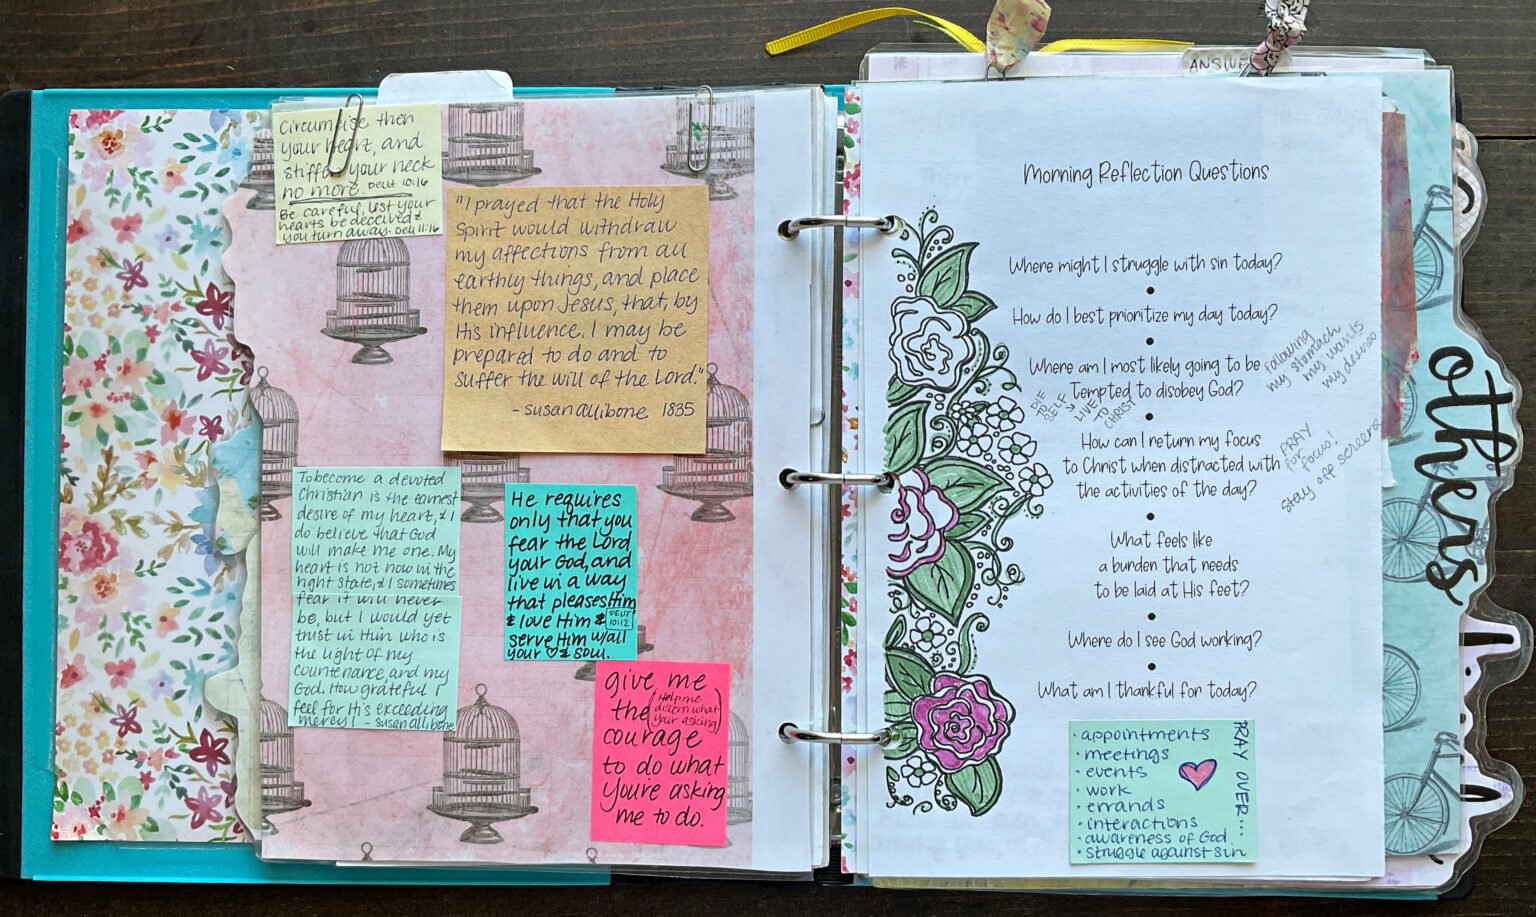 Circumcise then
your heart, and
stiffen your neck
no more. Deut 10:16
Be careful, lest your
hearts be deceived &
you turn away. Deut 11:16
"I prayed that the Holy
Spirit would withdraw
my affections from all
earthly things, and place
them upon Jesus, that, by
His influence, I may be
prepared to do and to
suffer the will of the Lord."
- susan allibone 1835
To become a devoted
Christian is the earnest
desire of my heart, & I
do believe that God
will make me one. My
heart is not now in the
right state, & I sometimes
fear it will never
be, but I would yet
trust in Him who is
the light of my
countenance, and my
God. How grateful I
feel for His exceeding
mercy! - susan allibone
He requires
only that you
fear the Lord
your God, and
live in a way
that pleases Him
& love Him &
DEUT
10:12
serve Him w/all
your ♡ & soul.
give me
the (Help me
discern what
your asking)
courage
to do what
you're asking
me to do.
ANSWE
Morning Reflection Questions
Where might I struggle with sin today?
•
How do I best prioritize my day today?
•
Where am I most likely going to be
Tempted to disobey God?
following
my stomach
my wants
my desires
DIE
TO
SELF
LIVE
TO
CHRIST
•
How can I return my focus
to Christ when distracted with
the activities of the day?
PRAY
for
focus!
stay off screens
•
What feels like
a burden that needs
to be laid at His feet?
•
Where do I see God working?
•
What am I thankful for today?
• appointments
• meetings
• events
• work
• errands
• interactions
• awareness of God
• struggle against sin
PRAY OVER...
others